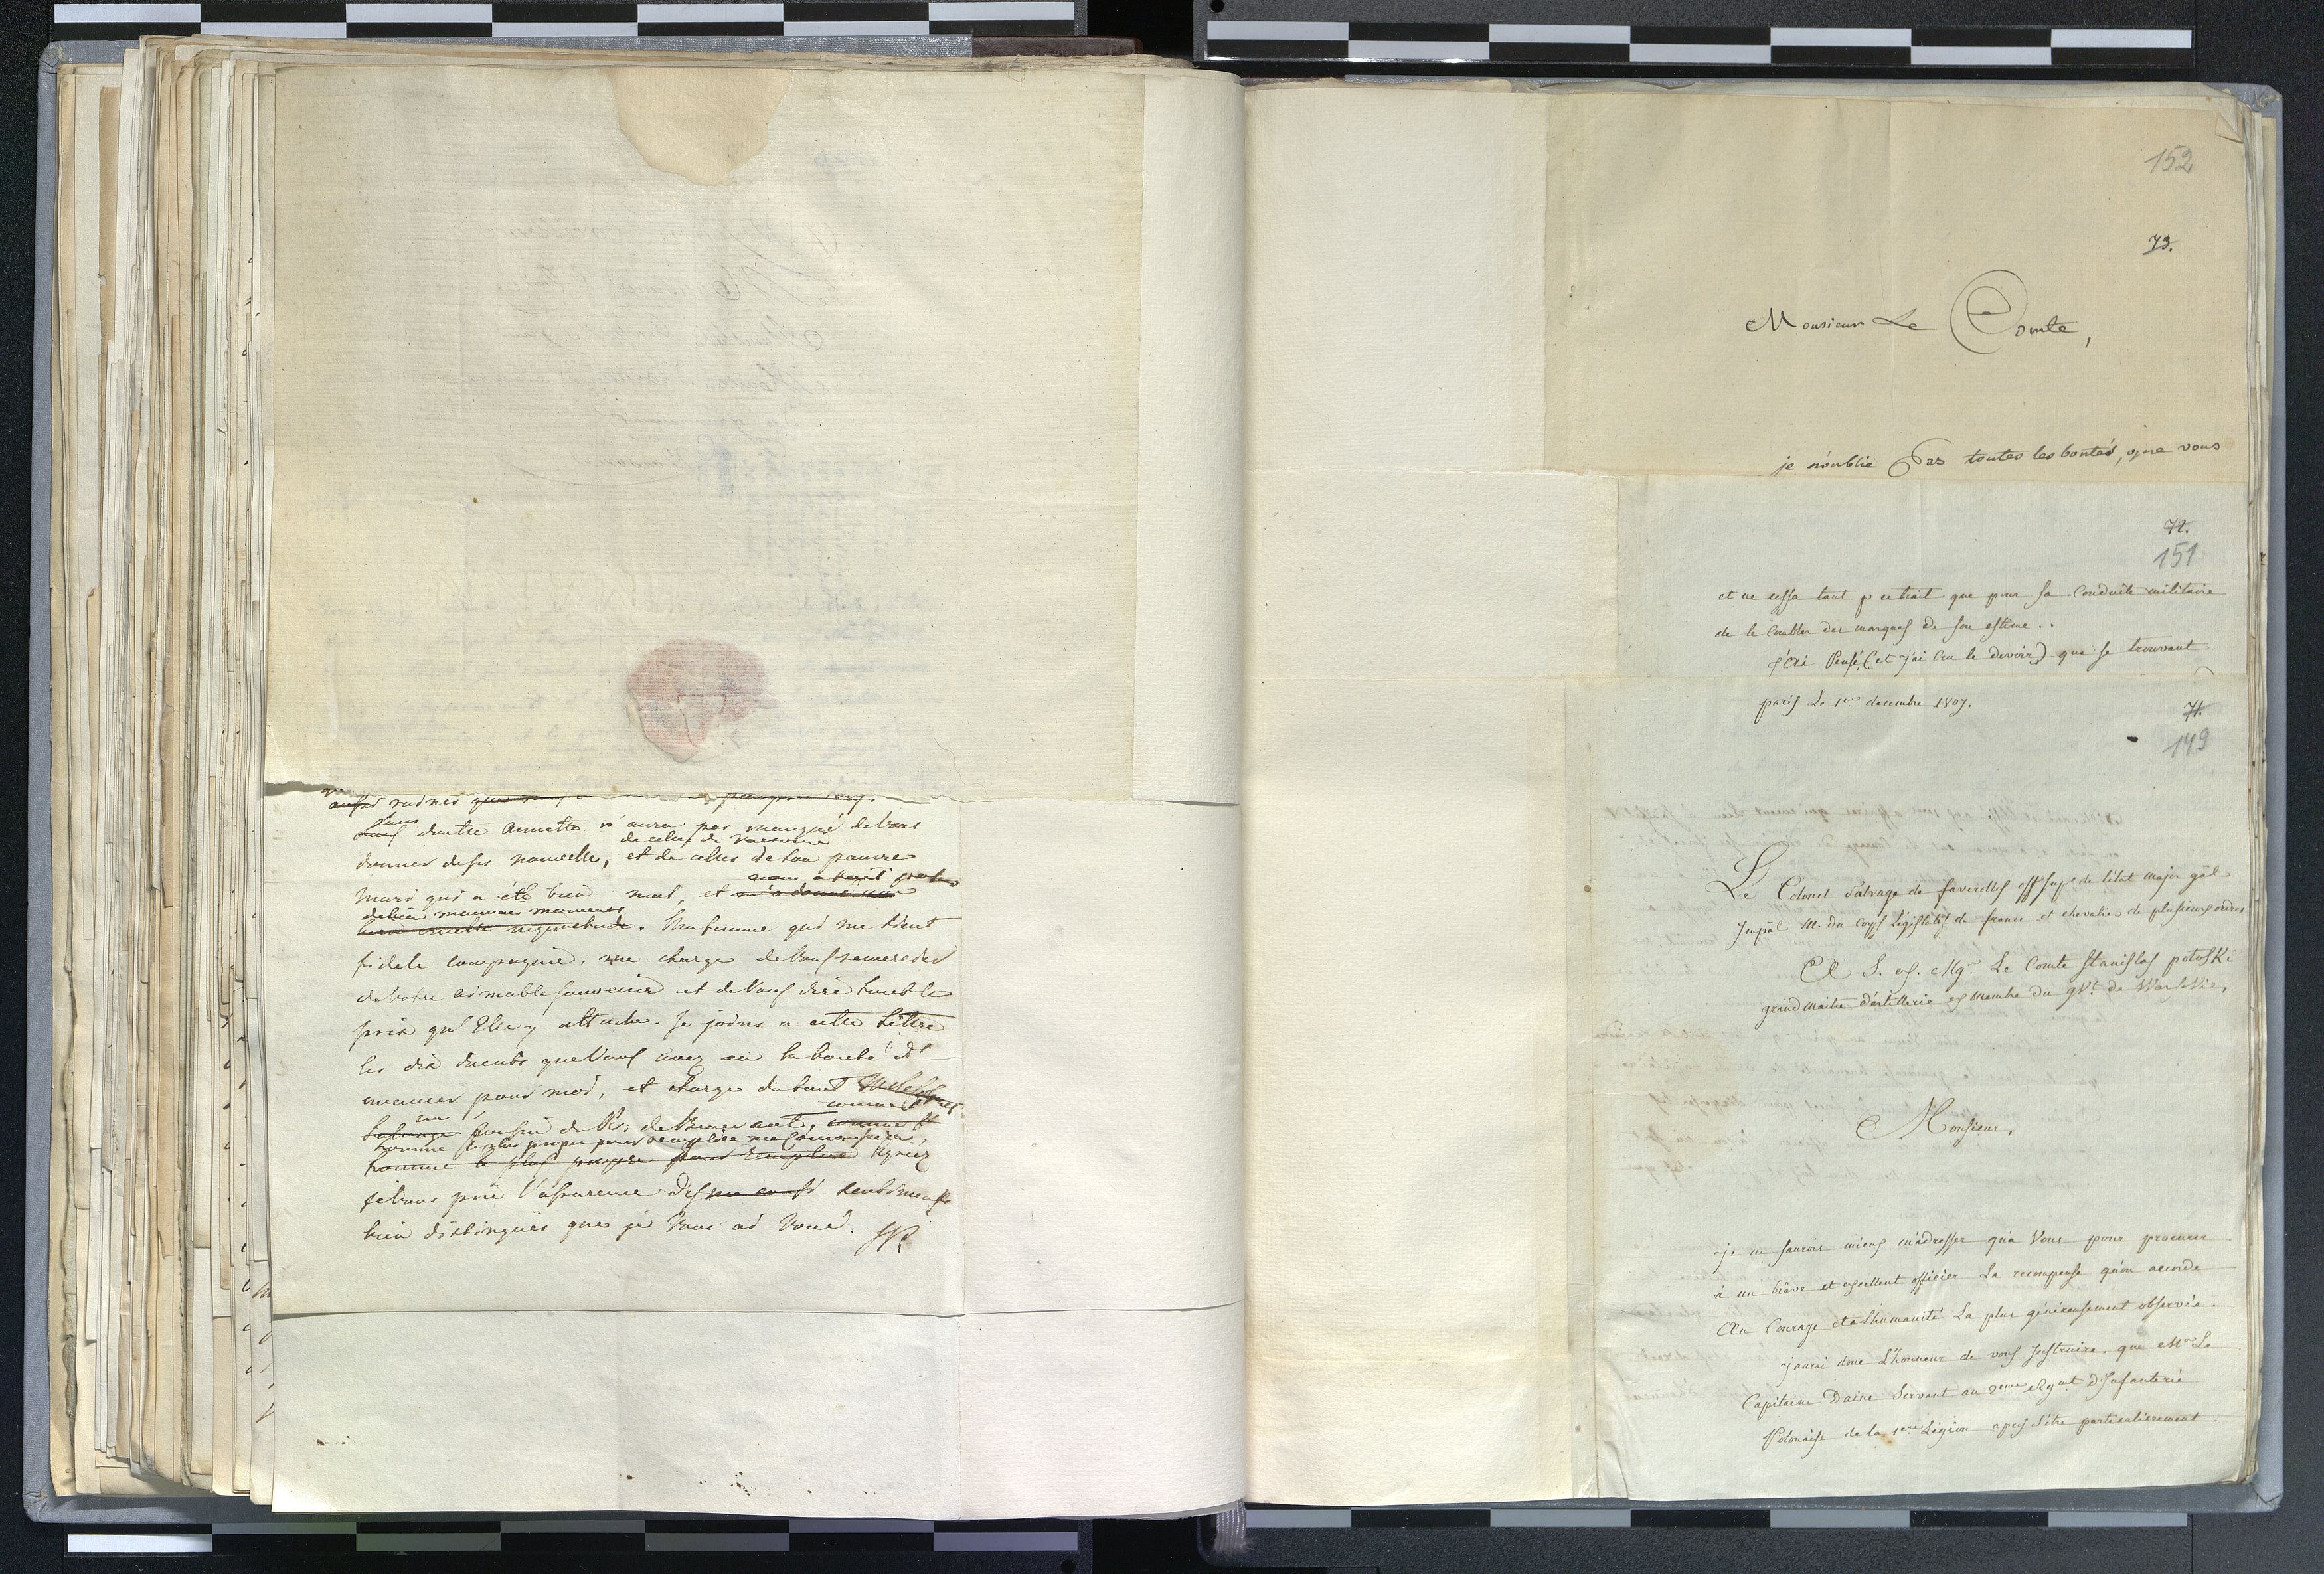 sans doutte Annette n'aura pas manqué de Vous
donner de ses nouvelle, et de celles de son pauvre
mari qui a été bien mal, et m'a donné une
de bien mauvais moments
Ma femme qui me tient
fidele compagnie, me charge de Vous remercier
de Votre aimable souvenir et de Vous dire tout le
prix qu'Elle y attache. Je joins a cette Lettre
les dix ducats que Vous avez eu la bonté d'
avancer pour moi, et charge du tout
homme le plus propre pour remplir
Agréez
je Vous prie l'assurance des sentimens
bien distingués que je Vous ai Voué. SP
152
73.
Monsieur Le Comte,
je n'oublie Pas toutes les bontés, que vous
72.
151
et ne cessa tant p cetrait que pour sa Conduite militaire
de le Combler des marques de son estime..
j'ai Pensé (et j'ai Cru le devoir) que se trouvant
paris Le 1er decembre 1807.
71.
149
Le Colonel Salvage de faverolles offr supr de l'état major gãl
Impãl M. du Corps Législatif de france et chevalier de plusieurs ordres
A S. ex. Mgr. Le Comte Stanislas potoski
grand maitre d'artillerie et membre du gvt. de Varsovie,
Monsieur,
je ne saurois mieux m'adresser qu'a Vous pour procurer
à un brave et excellent officier La recompense qu'on accorde
Au Courage et à l'humanité La plus généreusement observée.
j'aurai donc L'honneur de vous Instruire, que Mr Le
Capitaine Daine Servant au 2eme Regmt d'Infanterie
Polonaise de la 1ere Légion apres s'être particulierement